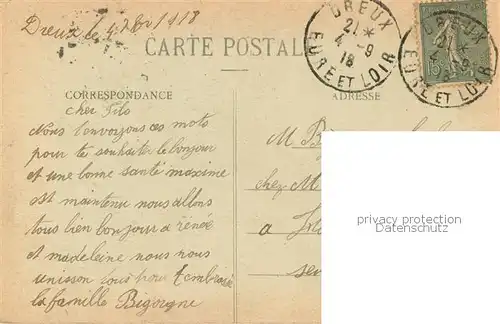 Dreux le 4 7bre 1918
DREUX
21 *
4 - 9
18
EURE ET LOIR
DREUX
21 *
4 - 9
18
EURE ET LOIR
CARTE POSTALE
CORRESPONDANCE
ADRESSE
cher Fils
Nous t'envoyons ces mots
pour te souhaiter le bonjour
et une bonne santé maxime
est maintenue nous allons
tous bien bonjour a renée
et madeleine nous nous
unisson tous pour t'embrasser
la famille Bigorgne
M
chez M
a
privacy protection
Datenschutz